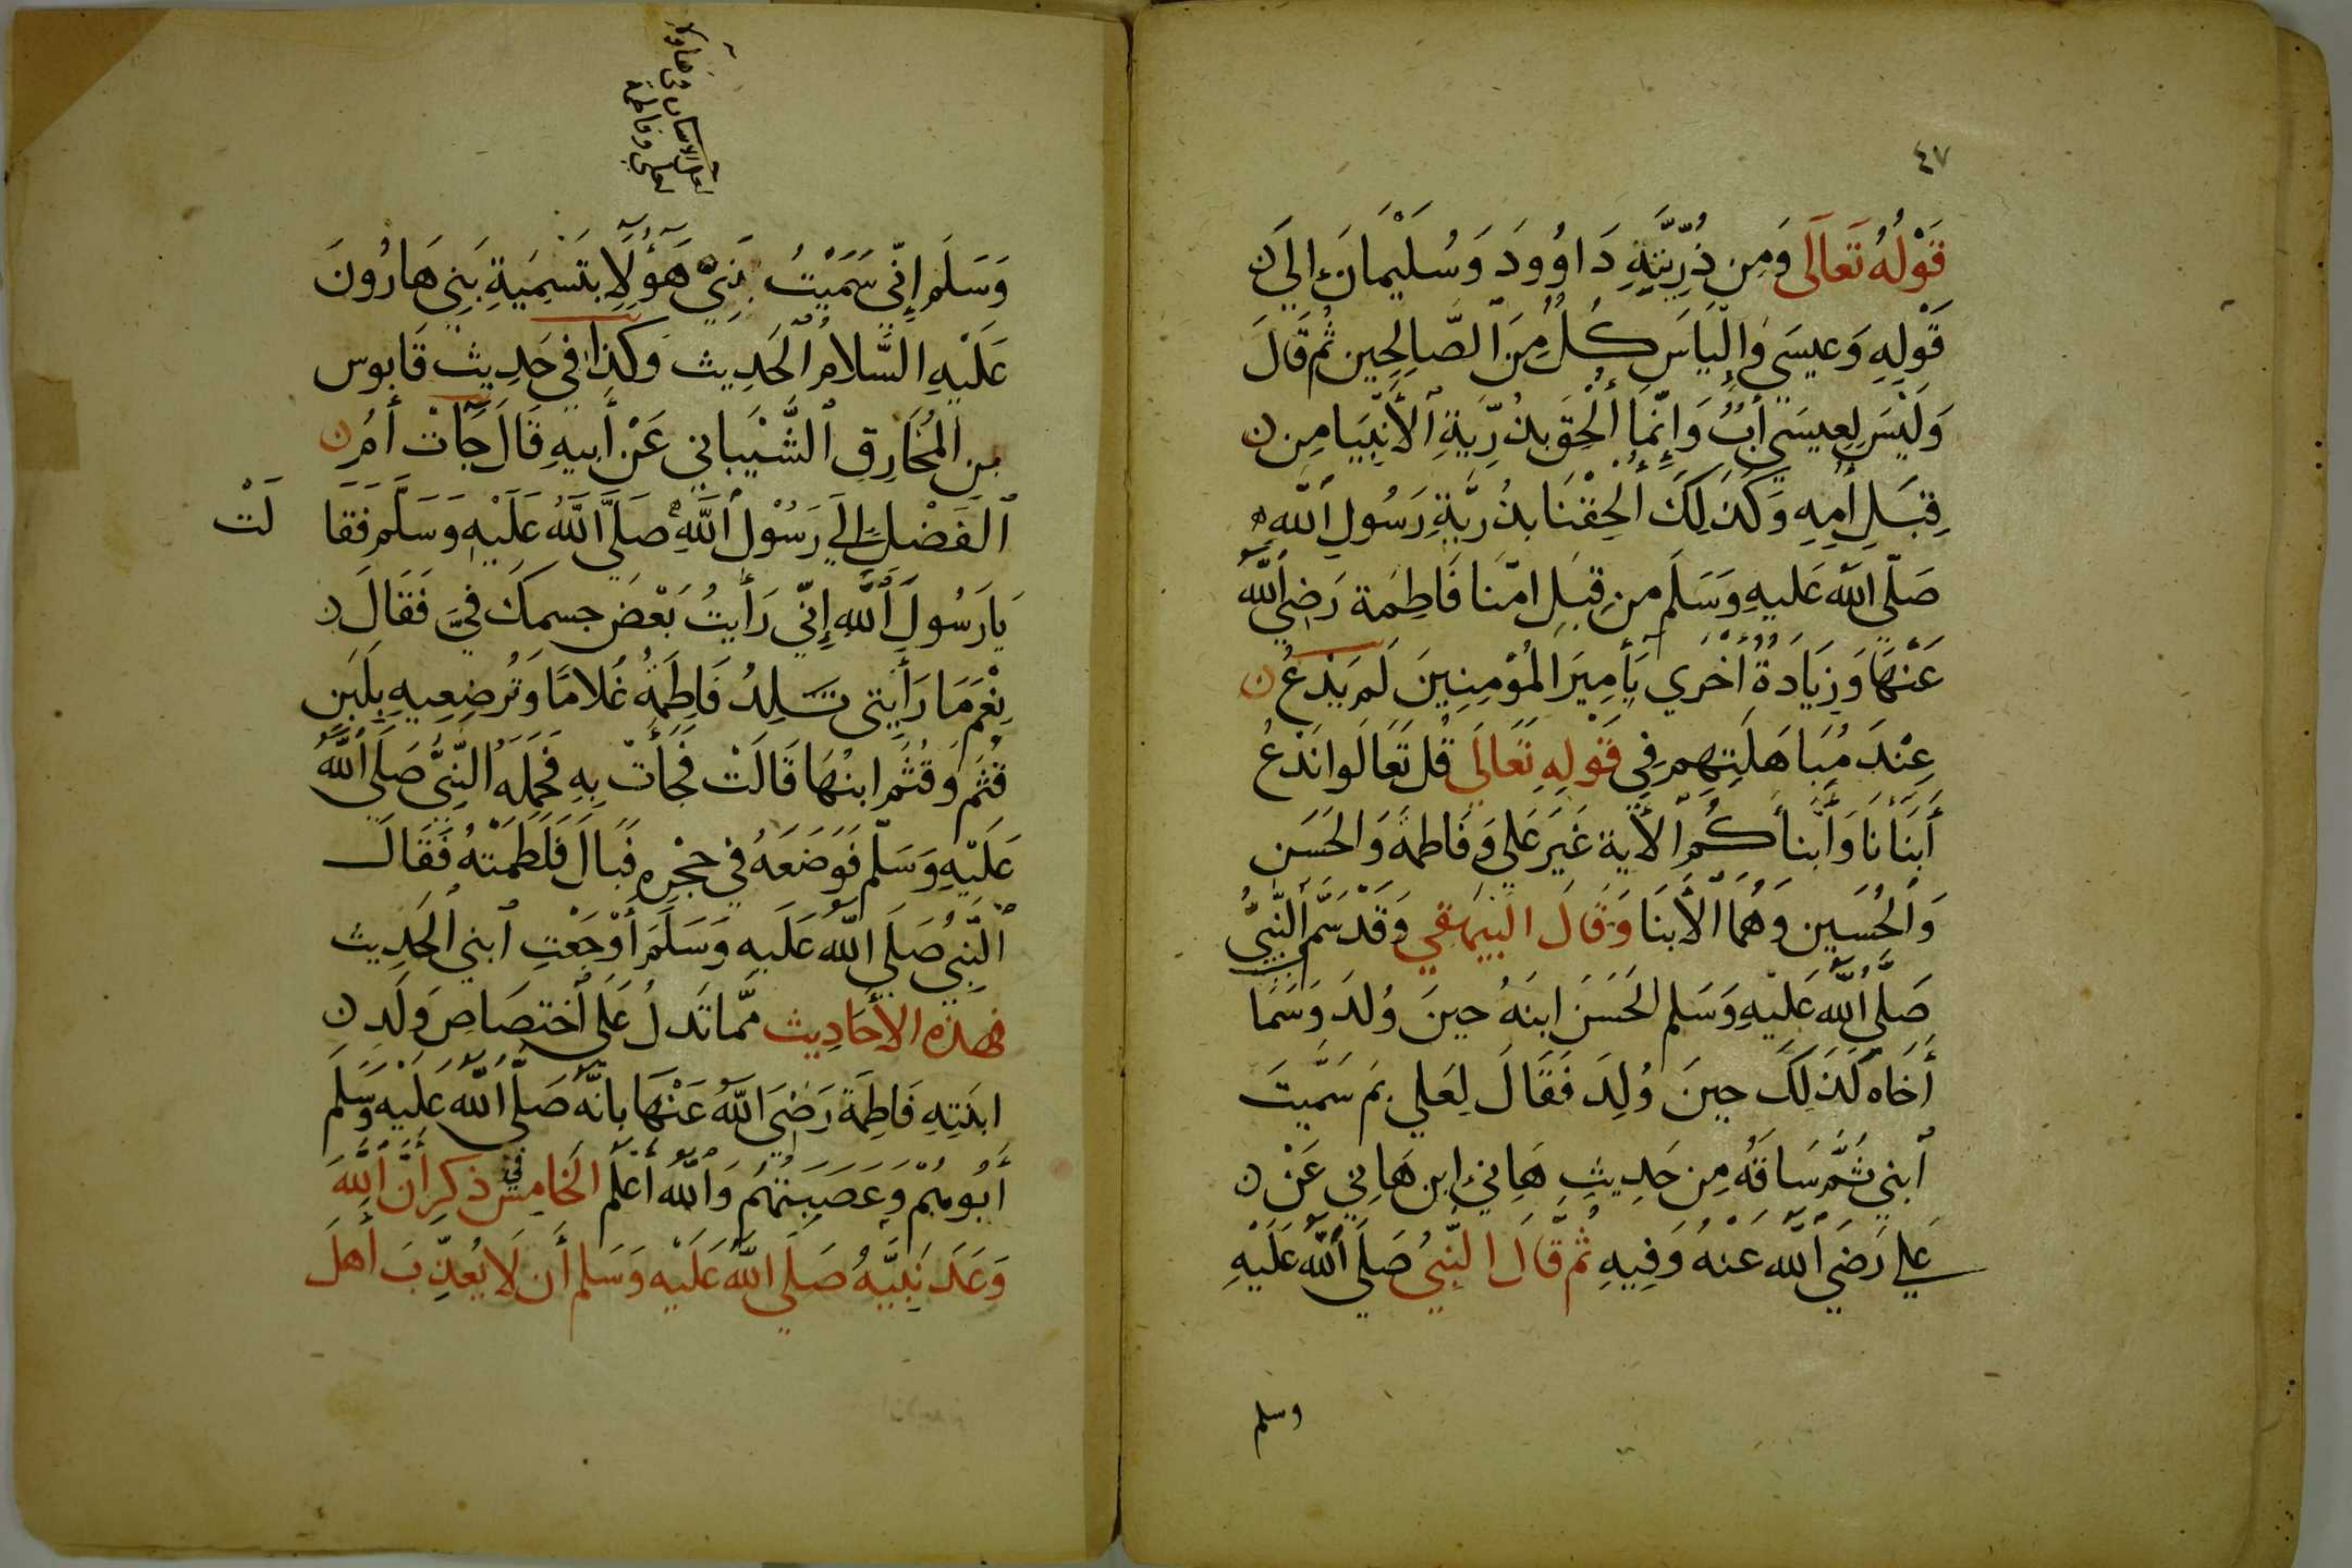 ٤٧
قَوْلُهُ تَعَالَى وَمِن ذُرِّيَّتِهِ دَاوُودَ وَسُلَيْمَانَ إلى
قَوْلِهِ وَعِيسَى وَإلْيَاسَ كُلٌّ مِنَ الصَّالِحِين ثُم قَالَ
وَلَيْسَ لِعِيسَى أَبٌ وَإِنَّمَا أُلْحِقَ بذُرِّيَةِ الأَنْبِيَا مِن
قِبَلِ أُمِهِ وَكَذَلِكَ أُلحِقْنَا بذُرِّيَّةِ رَسُولِ اللَّهِ
صَلّى اللَّه عَليهِ وَسَلَم مِن قِبَلِ امّنَا فَاطِمَة رَضِيَ اللَّه
عَنْهَا وَزِيَادَةٌ أُخْرَى يَأَمِيرَ المُؤْمِنِينَ لَم يَدْعُ
عِنْدَ مُبَاهَلَتِهِم فِي قَوْلِهِ تَعَالَى قُل تَعَالَوا نَدْعُ
أَبْنَانَا وَأَبْنَاكُم الأَية غَيَر عَلي وَفَاطمةَ وَالحَسَن
وَالحُسَين وَهُمَا الأَبنَا وَقَالَ البَيهَقي وَقَدْ سَمَّ النَّبِيُّ
صَلَّى اللَّه عَلَيْهِ وَسَلم الحَسَنَ ابنَهُ حينَ وُلدَ وَسَمَا
أَخَاه كَذَلِكَ حِينَ وُلِدَ فَقَالَ لِعَلي بِمَ سَمَّيتَ
ابني ثُمَّ سَاقَهُ مِن حَدِيثِ هَانِئ ابن هَانِي عَنْ
عَلي رَضيَ اللَّه عَنْهُ وَفِيهِ ثُمَّ قَالَ النَّبيُ صَلَى اللَّه عَلَيْهِ
وسلم
وَسَلَم إِنِّي سَمَّيْتُ بَنِيَّ هَؤُلَآ بِتَسْمِيَةِ بَنِي هَارُونَ
عَلَيْهِ السَّلامُ الحَدِيث وَكذَا في حَدِيث قَابوس
بن المُخَارِق الشَّيْبانِي عَنْ أَبِيهِ قَالَ جَآتْ أُمُ
الفَضْلِ إلى رَسُوْلِ اللَّهِ صَلَّى اللَّهُ عَلَيْهِ وَسَلَّم فَقَالَتْ
يَا رَسُولَ اللَّهِ إِنّي رَأَيتُ بَعْضَ جسمكَ فيَّ فَقَالَ
نِعْمَ مَا رَأَيتي تَلِدُ فَاطِمَةُ غُلامًا وَتُرضِعِيهِ بِلَبَنِ
قُثَم وَقُثَم ابنُهَا قَالَتْ فجَأَتْ بِهِ فحَمَلَهُ النَّبِيُّ صَلَى اللَّهُ
عَلَيْهِ وَسَلّم فَوَضَعَهُ في حجْرِهِ فبَالَ فَلَطَمْتهُ فَقَالَ
النَّبِيُ صَلَى اللَّه عَلَيهِ وَسَلَم أَوْجَعْتِ ابني الحَدِيث
فهذه الأَحَادِيث ممَّا تَدلُ عَلى اختصَاصِ وَلَدِ
ابنَتِهِ فَاطِمَة رَضِيَ اللَّهُ عَنْهَا بأنَّهُ صَلَّى اللَّه عَلَيْهِ وَسَلَم
أَبُوهُمْ وَعَصَبَتهُم وَاللَّه أَعْلَم الخَامِس في ذكر أَنَّ اللَّهَ
وَعَدَ نَبِيَّهُ صَلَى اللَّه عَلَيْه وَسَلم أَن لَا يُعَذِّبَ أَهلَ